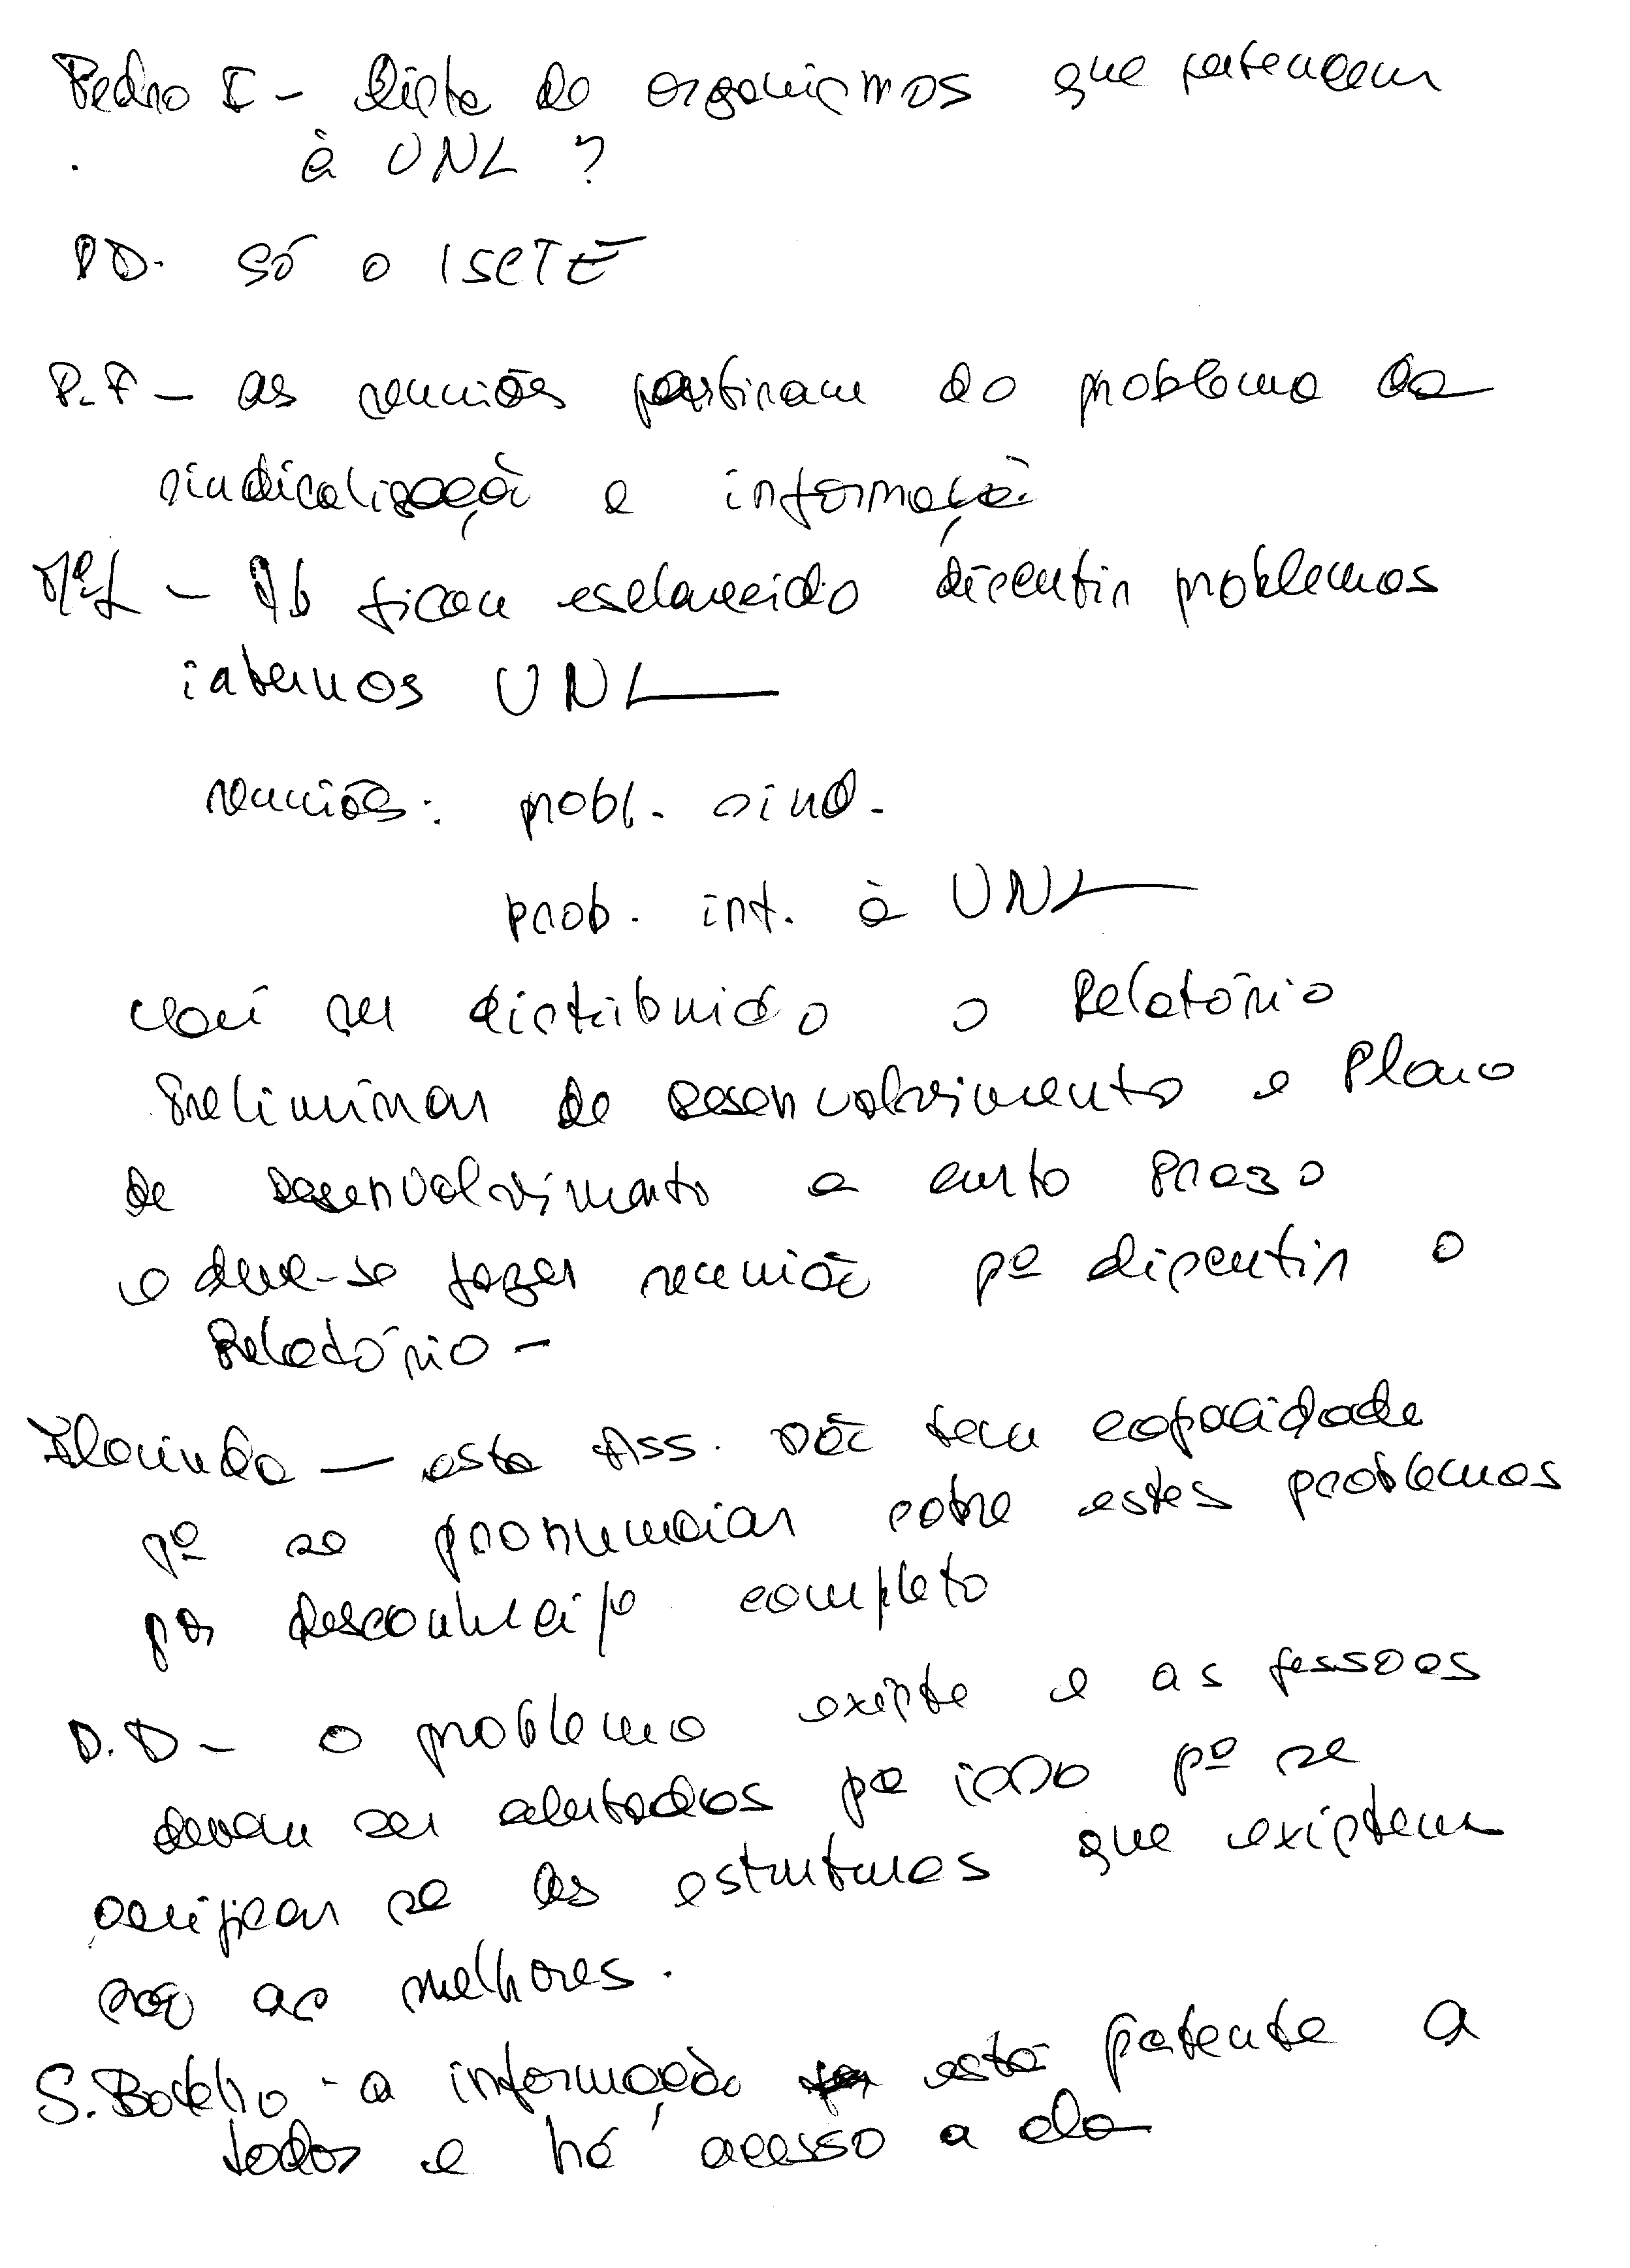 Pedro F - Lista de organismos que pertencem
à UNL ?
P.D. só o ISCTE
P.F - as reuniões partiram do problema da
sindicalização e informação
Mª L - Qb ficou esclarecido discutir problemas
internos UNL
reuniões: probl. sind.
prob. int. à UNL
vai ser distribuido o Relatório
Preliminar de Desenvolvimento e Plano
de Desenvolvimento a curto Prazo
e deve-se fazer reunião pª discutir o
Relatório -
Florinda - esta Ass. não tem capacidade
pª se pronunciar sobre estes problemas
por desconhecito completo
D.D - o problema existe e as pessoas
devem ser alertadas pª isso pª se
verificar se as estruturas que existem
são as melhores.
S. Botelho - a informação está patente a
todos e há acesso a ela